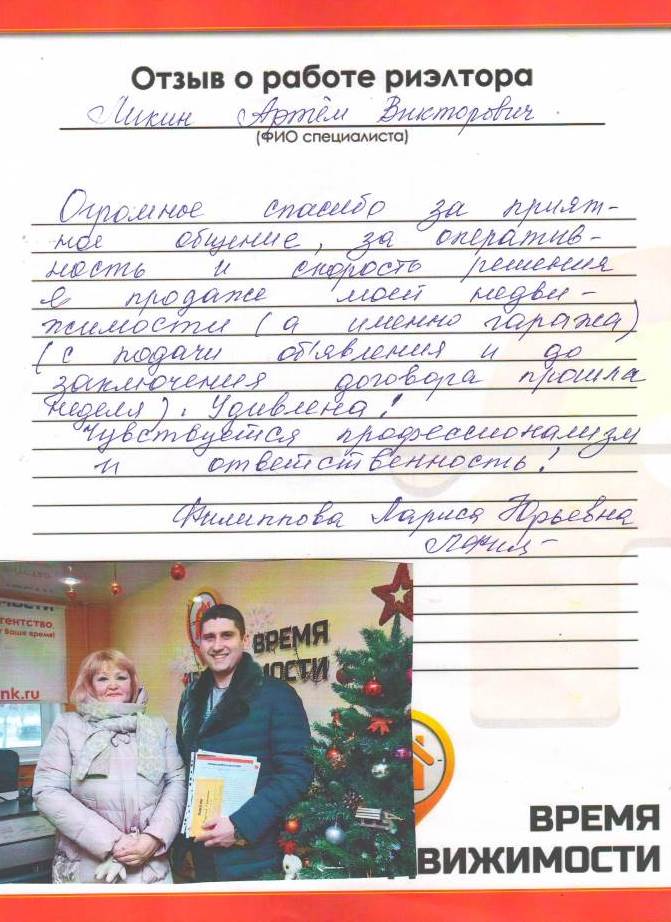 Отзыв о работе риэлтора
Ликин Артём Викторович
(ФИО специалиста)
Огромное спасибо за прият-
ное общение, за оператив-
ность и скорость решения
в продаже моей недви-
жимости (а именно гаража)
(с подачи объявления и до
заключения договора прошла
неделя). Удивлена!
Чувствуется профессионализм
и ответственность!
Филиппова Лариса Юрьевна
гентство
Ваше время!
nk.ru
ВРЕМЯ
МОСТИ
ВРЕМЯ
ВИЖИМОСТИ